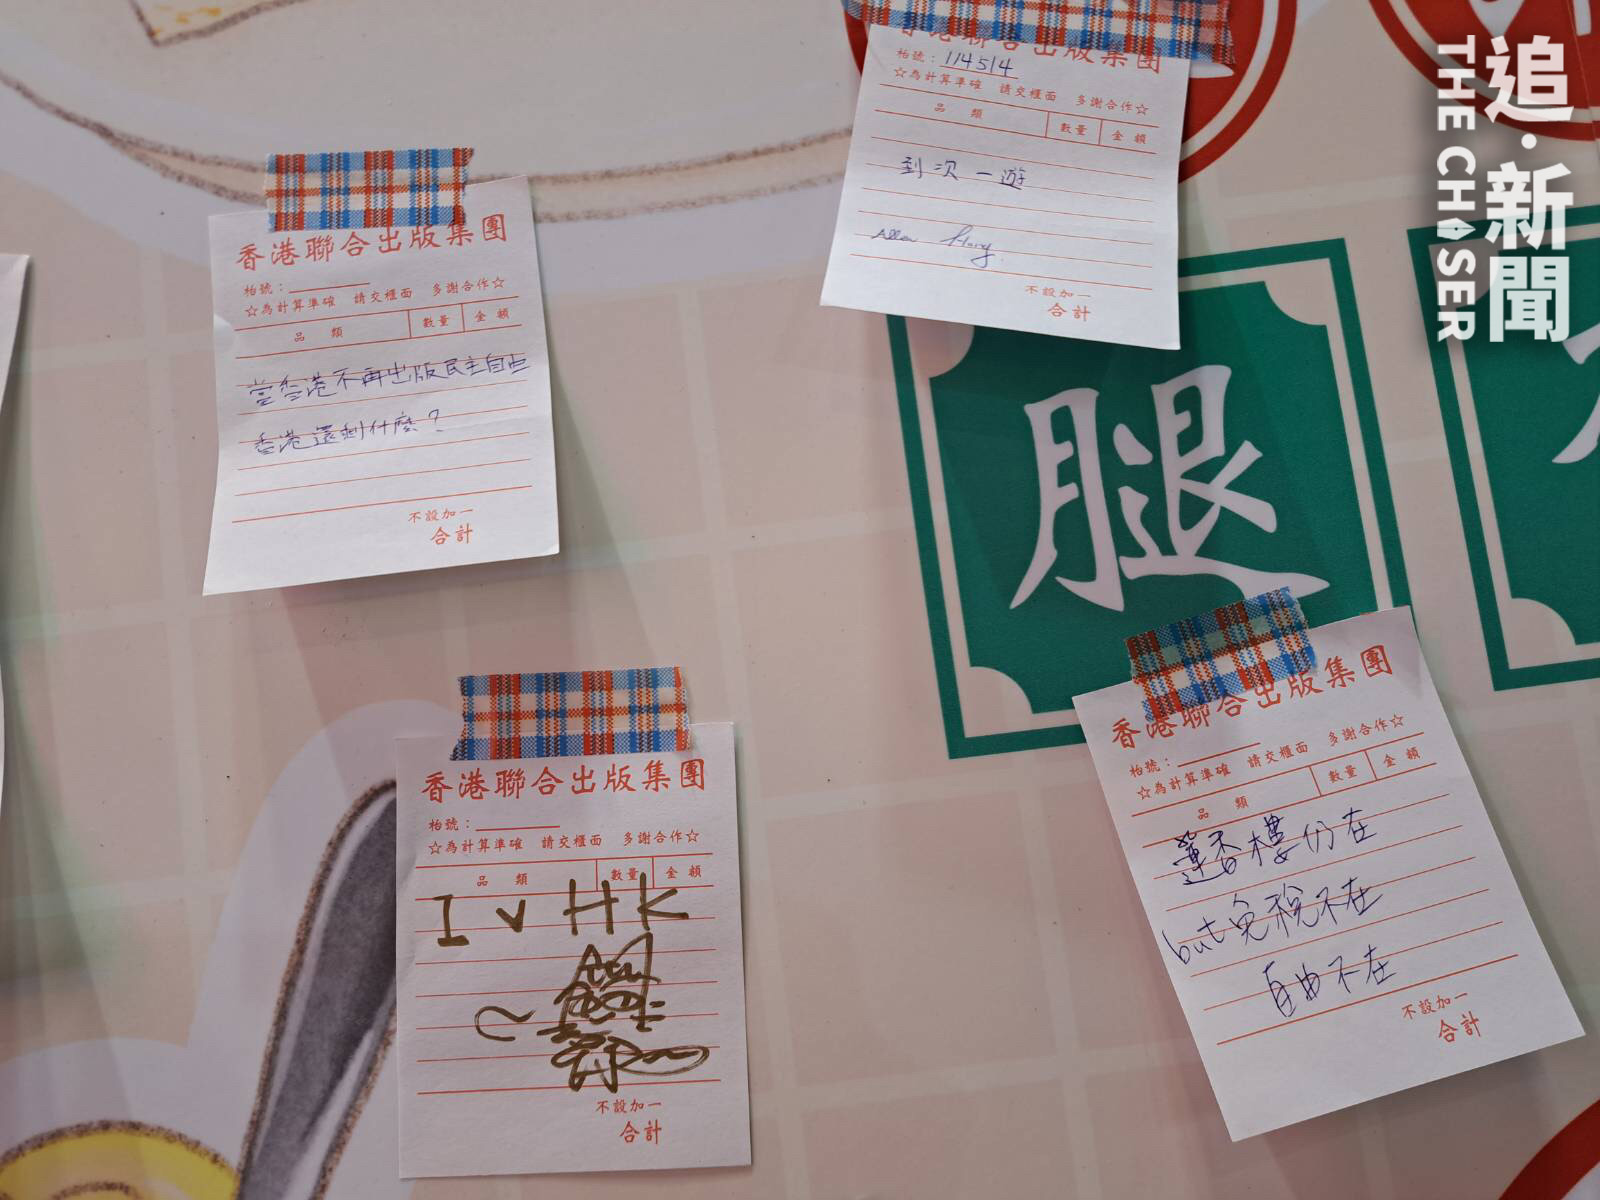 追·新聞
THE CHASER
香港聯合出版集團
枱號：114514
☆為計算準確 請交櫃面 多謝合作☆
品 類 數量 金額
到次一遊
不設加一
合計
香港聯合出版集團
枱號：
☆為計算準確 請交櫃面 多謝合作☆
品 類 數量 金額
當香港不再出版民主自由
香港還剩什麼？
不設加一
合計
腿
香港聯合出版集團
枱號：
☆為計算準確 請交櫃面 多謝合作☆
品 類 數量 金額
I v HK
不設加一
合計
香港聯合出版集團
枱號：
☆為計算準確 請交櫃面 多謝合作☆
品 類 數量 金額
蓮香樓仍在
but免稅不在
自由不在
不設加一
合計